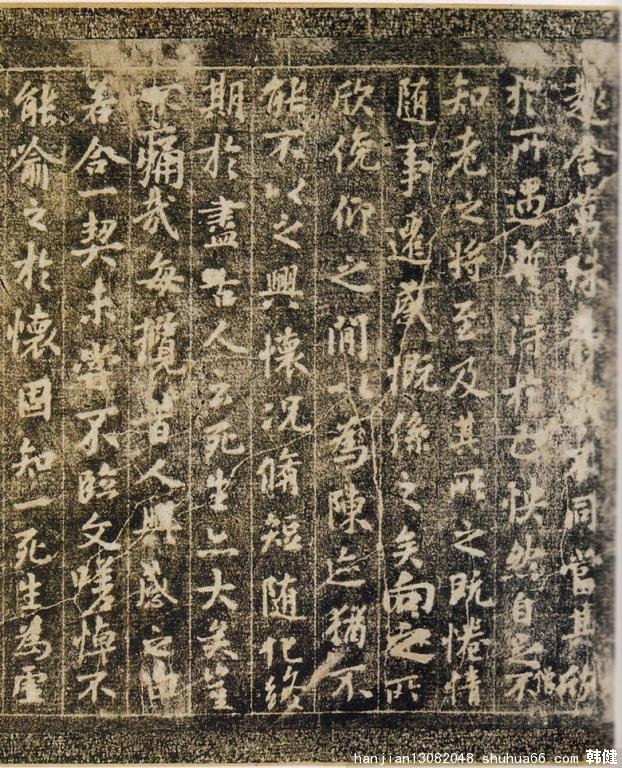 趣舍萬殊靜躁不同當其欣
於所遇暫得於己快然自足不
知老之將至及其所之既惓情
随事遷感慨係之矣向之所
欣俛仰之閒以為陳迹猶不
能不以之興懷况脩短随化終
期於盡古人云死生亦大矣豈
不痛哉每攬昔人興感之由
若合一契未嘗不臨文嗟悼不
能喻之於懷固知一死生為虛
hanjian13082048.shuhua66.com 韩健